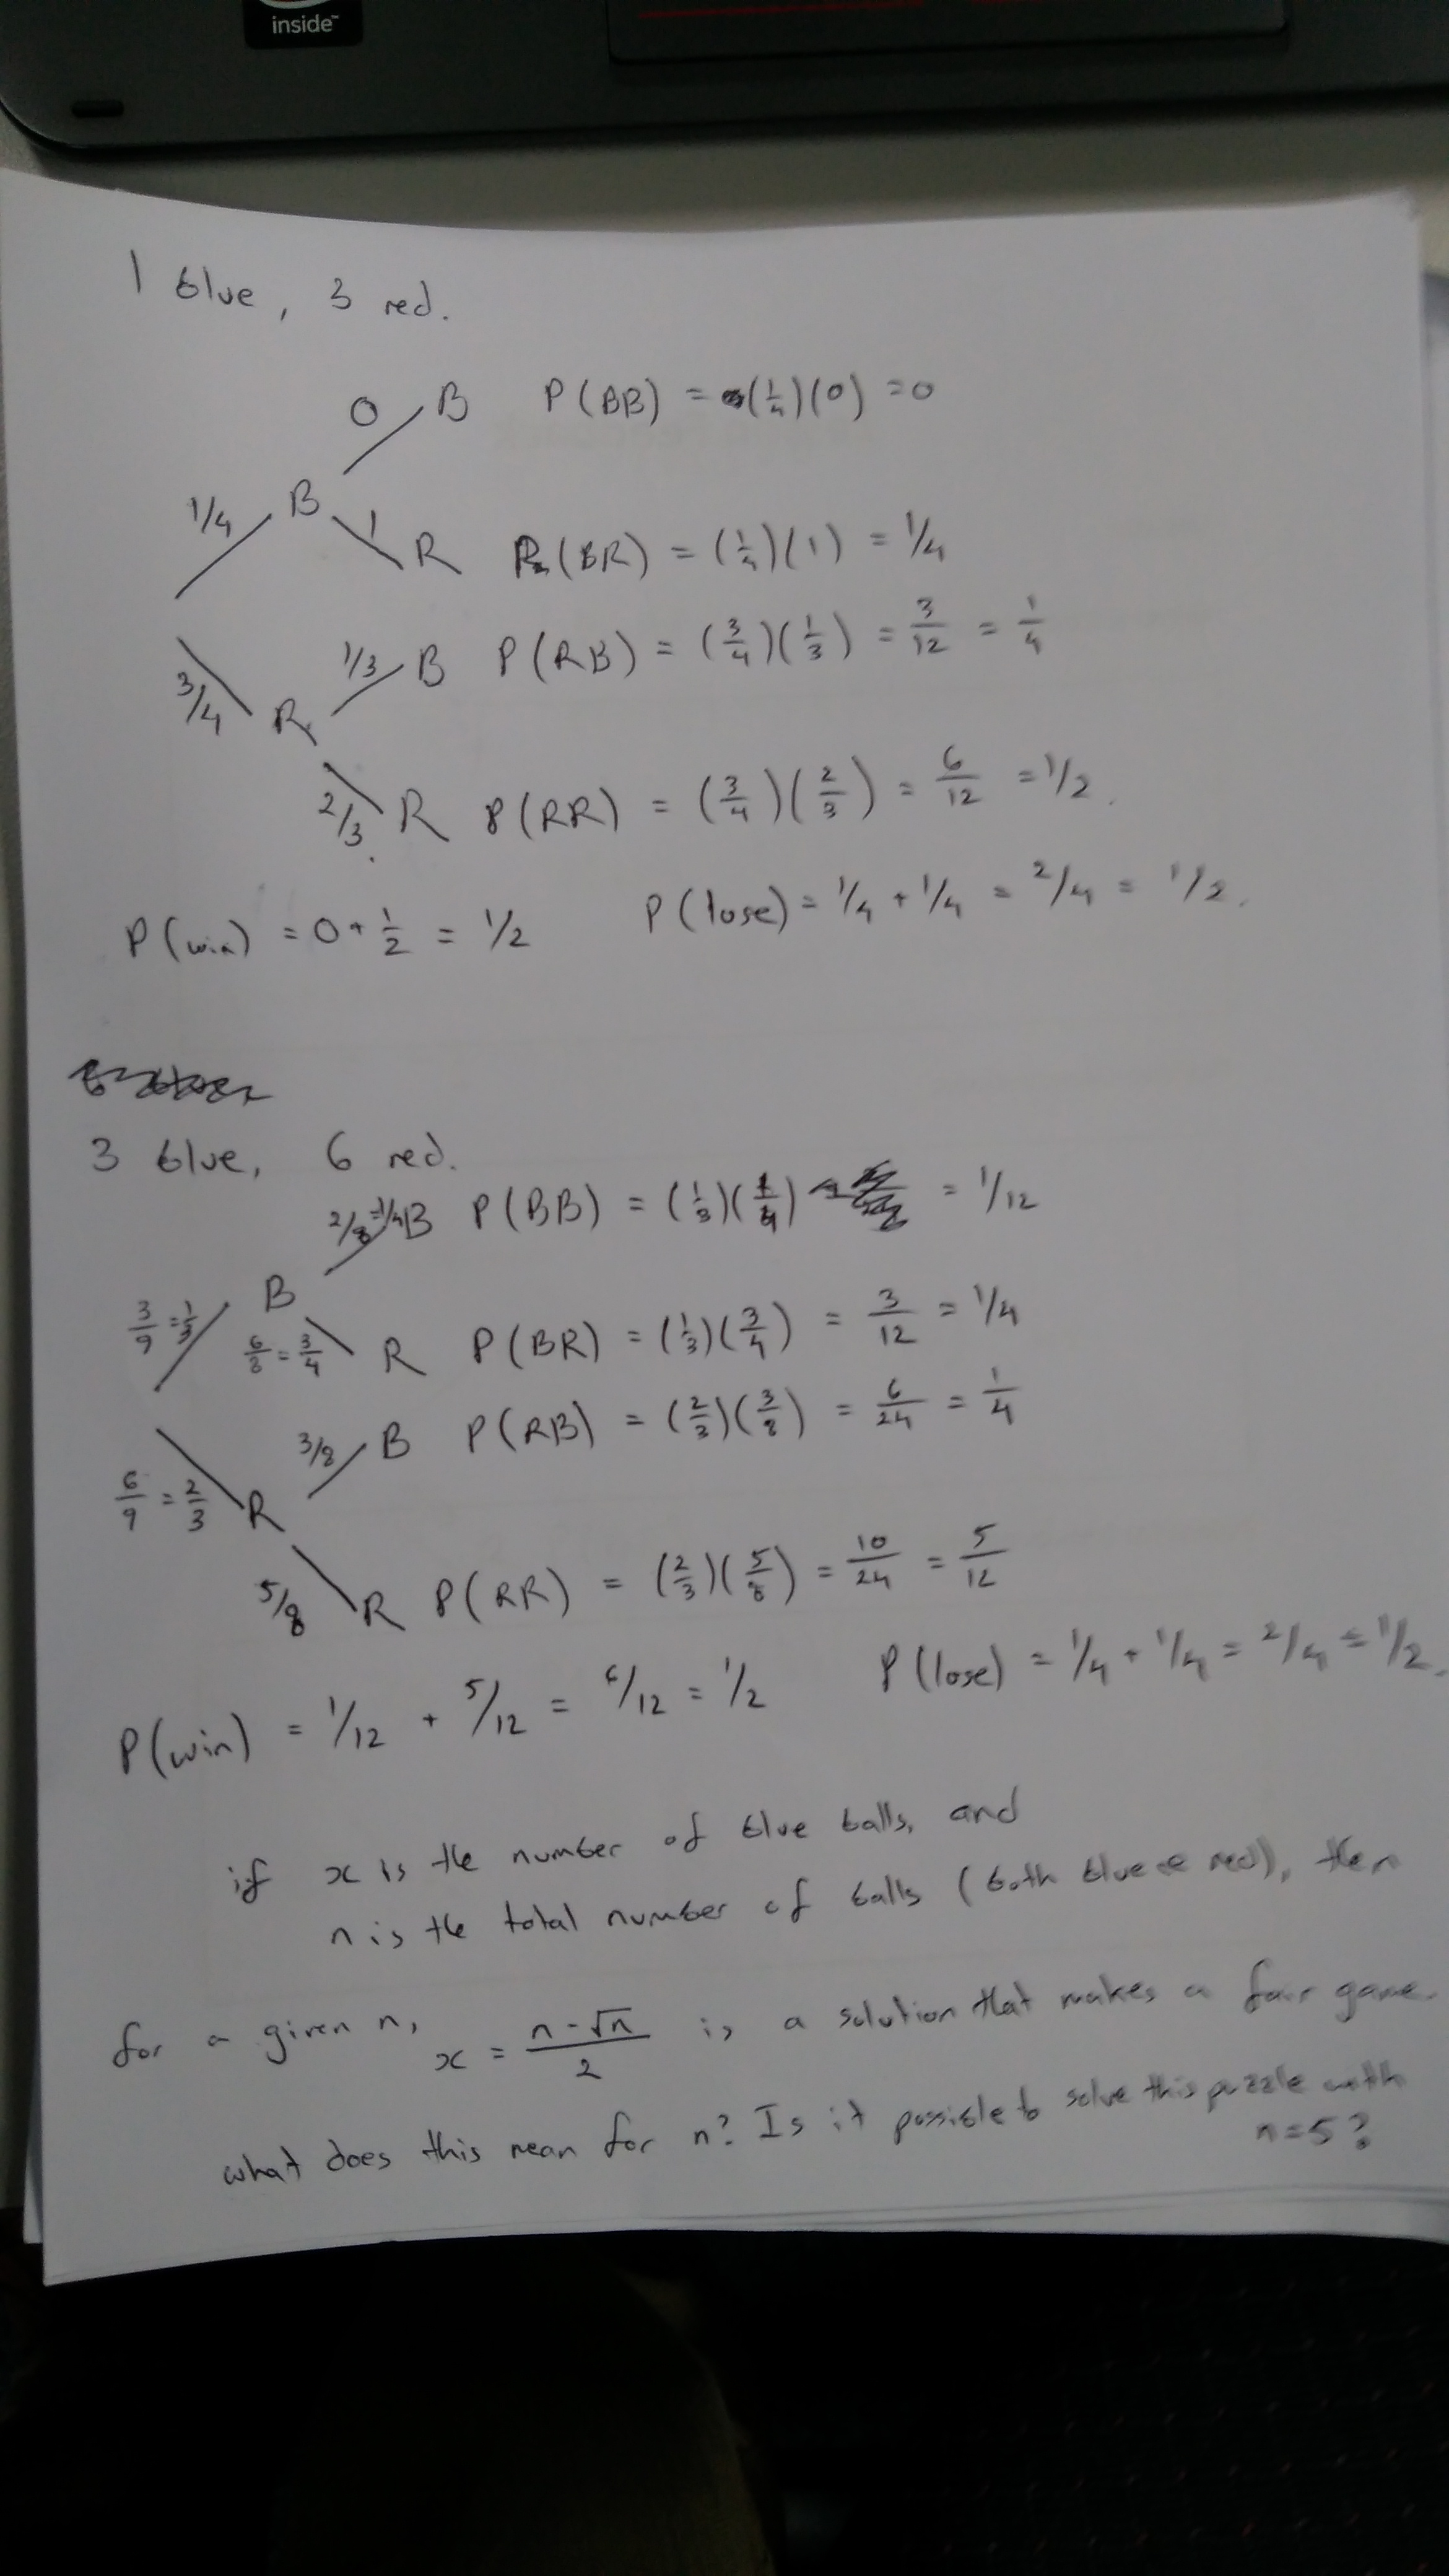 inside™
1 blue, 3 red.
0 B P(BB) = (1/4)(0) = 0
1/4 B
1 R P(BR) = (1/4)(1) = 1/4
1/3 B P(RB) = (3/4)(1/3) = 3/12 = 1/4
3/4 R
2/3 R P(RR) = (3/4)(2/3) = 6/12 = 1/2.
P(win) = 0 + 1/2 = 1/2 P(lose) = 1/4 + 1/4 = 2/4 = 1/2.
3 blue, 6 red.
2/8 = 1/4 B P(BB) = (1/3)(1/4) = 1/12
3/9 = 1/3 B
6/8 = 3/4 R P(BR) = (1/3)(3/4) = 3/12 = 1/4
3/8 B P(RB) = (2/3)(3/8) = 6/24 = 1/4
6/9 = 2/3 R
5/8 R P(RR) = (2/3)(5/8) = 10/24 = 5/12
P(win) = 1/12 + 5/12 = 6/12 = 1/2 P(lose) = 1/4 + 1/4 = 2/4 = 1/2.
if x is the number of blue balls, and
n is the total number of balls (both blue & red), then
for a given n, x = (n - √n)/2 is a solution that makes a fair game.
what does this mean for n? Is it possible to solve this puzzle with
n=5?